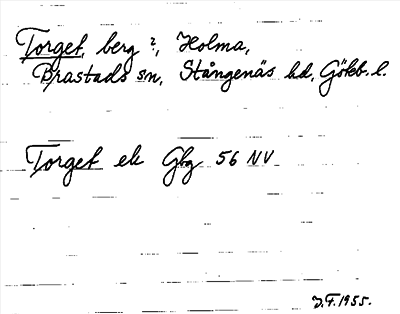 Torget, berg ?, Holma,
Brastads sn, Stångenäs hd, Göteb. l.
Torget ek Gbg 56 NV
J.F. 1955.